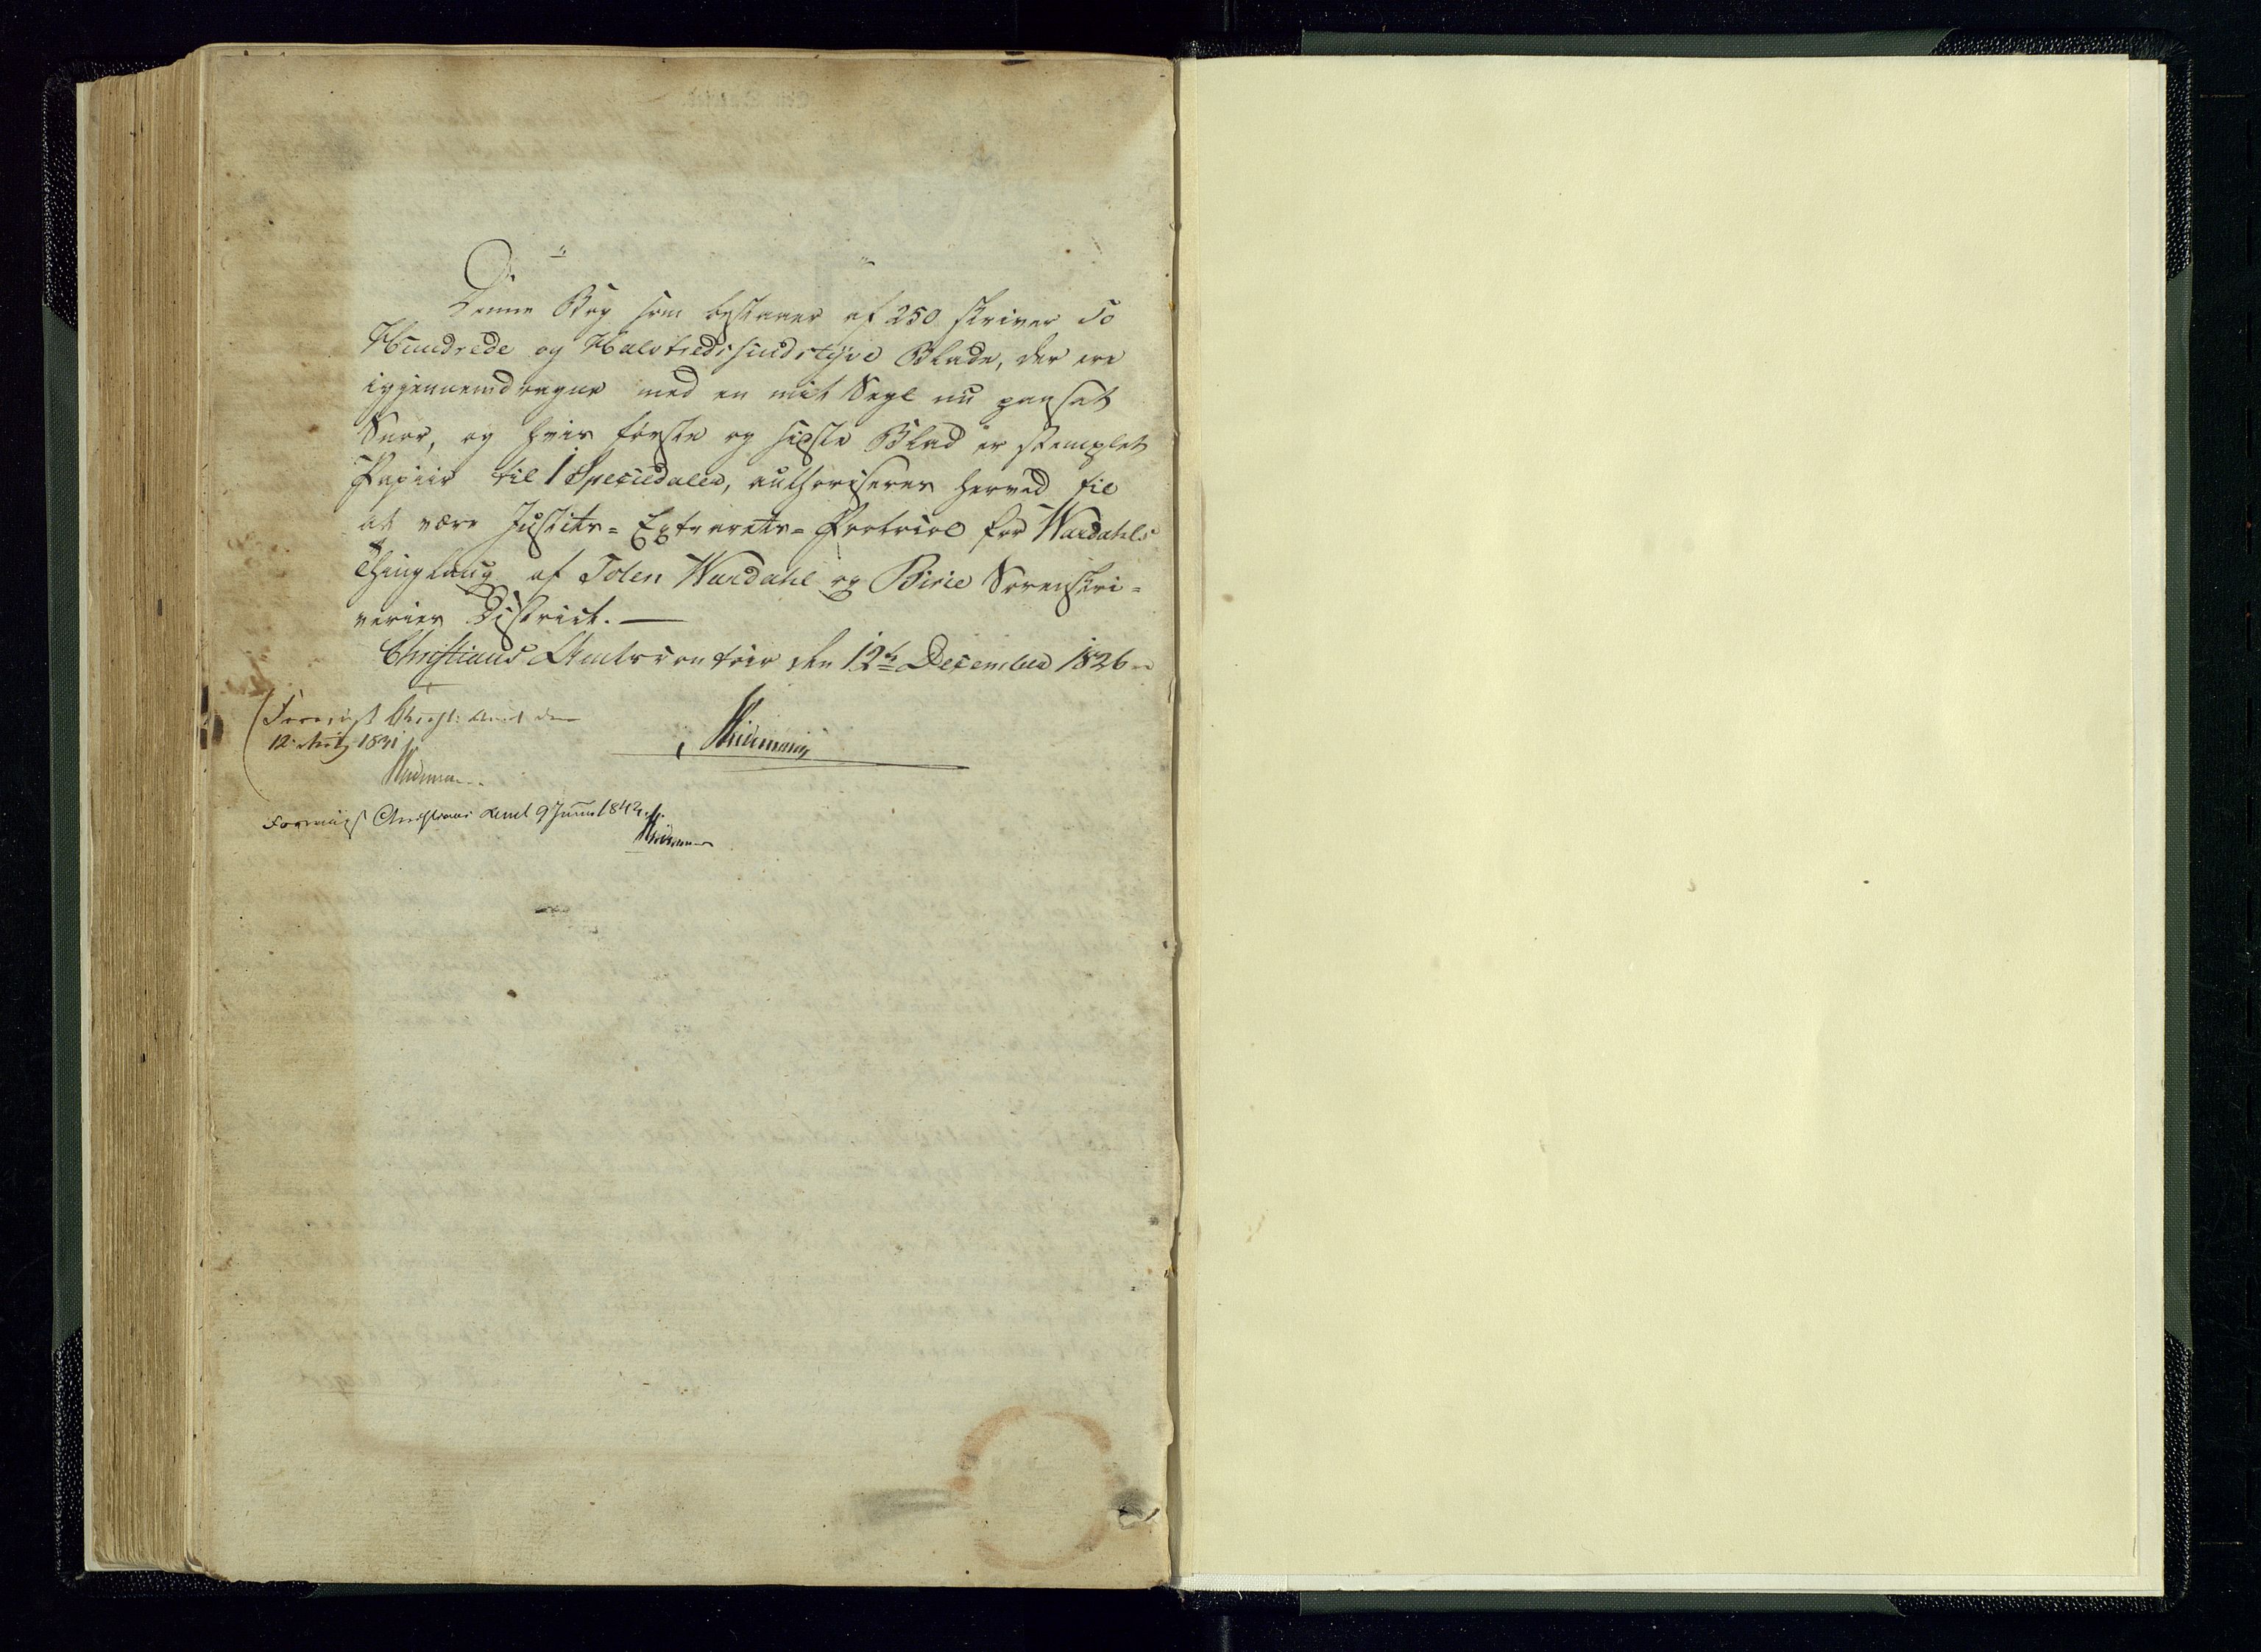 Denne Bog som bestaaer af 250 skriver To
Hundrede og Halvtredsindstyve Blade, der ere
igjennemdragne med en mit Segl nu paasat
Snor, og hvis første og sidste Blad er stemplet
Papiir til 1 Speciedaler, authoriseres herved til
at være Justits- Extrarets- Protocol for Wardahls
Thinglaug af Toten Wardahl og Birie Sorenskri-
veries District. —
Christians Amtscontoir den 12te December 1826
Thidemann
Forevist Christ: Amt den
12 1831
Thidemann
Forevist Christians Amt 9 Junii 1842.
Thidemann